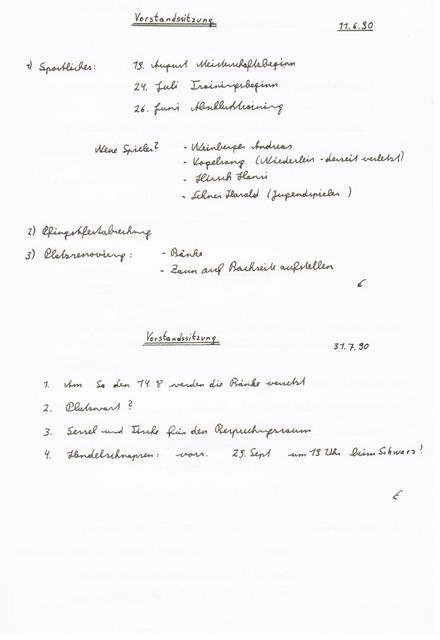 Vorstandssitzung 11.6.90
1) Sportliches: 19. August Meisterschaftsbeginn
24. Juli Trainingsbeginn
26. Juni Abschlußtraining
Neue Spieler? - Weinberger Andreas
- Vogelsang (Wiederlein - derzeit verletzt)
- Hirsch Hansi
- Harald (Jugendspieler)
2) Pfingstfestabrechnung
3) Platzrenovierung: - Bänke
- Zaun auf Bachseite aufstellen
Vorstandssitzung 31.7.90
1. Am So den 14.8 werden die Bänke versetzt
2. Platzwart?
3. Sessel und Tische für den Besprechungsraum
4. Hendelschnapsen: vorr. 29. Sept um 19 Uhr beim Schwarz!